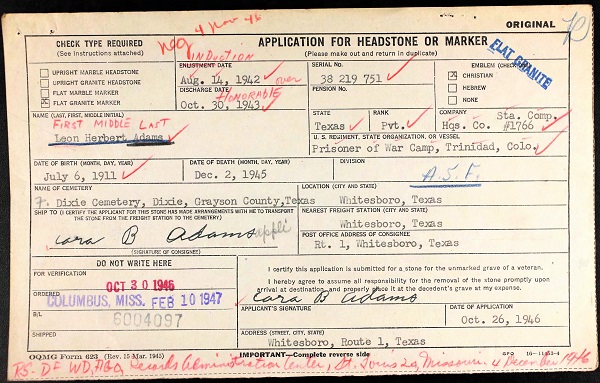 ORIGINAL
CHECK TYPE REQUIRED
(See Instructions attached)
neg 4 Nov 46
APPLICATION FOR HEADSTONE OR MARKER
(Please make out and return in duplicate)
FLAT GRANITE
UPRIGHT MARBLE HEADSTONE
UPRIGHT GRANITE HEADSTONE
FLAT MARBLE MARKER
FLAT GRANITE MARKER
INDUCTION
ENLISTMENT DATE
Aug. 14, 1942 over
DISCHARGE DATE
HONORABLE
Oct. 30, 1943
SERIAL NO.
38 219 751
PENSION NO.
EMBLEM
CHRISTIAN
HEBREW
NONE
NAME (LAST, FIRST, MIDDLE INITIAL)
FIRST MIDDLE LAST
Leon Herbert Adams
STATE
Texas
RANK
Pvt.
COMPANY
Sta. Comp.
Hqs. Co. #1766
U. S. REGIMENT, STATE ORGANIZATION, OR VESSEL
Prisoner of War Camp, Trinidad, Colo.
DATE OF BIRTH (MONTH, DAY, YEAR)
July 6, 1911
DATE OF DEATH (MONTH, DAY, YEAR)
Dec. 2, 1945
DIVISION
A.S.F.
NAME OF CEMETERY
Dixie Cemetery, Dixie, Grayson County, Texas
LOCATION (CITY AND STATE)
Whitesboro, Texas
SHIP TO (I CERTIFY THE APPLICANT FOR THIS STONE HAS MADE ARRANGEMENTS WITH ME TO TRANSPORT
THE STONE FROM THE FREIGHT STATION TO THE CEMETERY)
Cora B Adams appli
(SIGNATURE OF CONSIGNEE)
NEAREST FREIGHT STATION (CITY AND STATE)
Whitesboro, Texas
POST OFFICE ADDRESS OF CONSIGNEE
Rt. 1, Whitesboro, Texas
DO NOT WRITE HERE
FOR VERIFICATION
OCT 30 1946
ORDERED
COLUMBUS, MISS. FEB 10 1947
B/L
6004097
SHIPPED
I certify this application is submitted for a stone for the unmarked grave of a veteran.
I hereby agree to assume all responsibility for the removal of the stone promptly upon
arrival at destination, and properly place it at the decedent's grave at my expense.
Cora B Adams
APPLICANT'S SIGNATURE
DATE OF APPLICATION
Oct. 26, 1946
ADDRESS (STREET, CITY, STATE)
Whitesboro, Route 1, Texas
OQMG Form 623 (Rev. 15 Mar. 1945)
IMPORTANT—Complete reverse side
GPO 16-11453-4
Records Administration Center, St. Louis 20, Missouri 4 December 1946